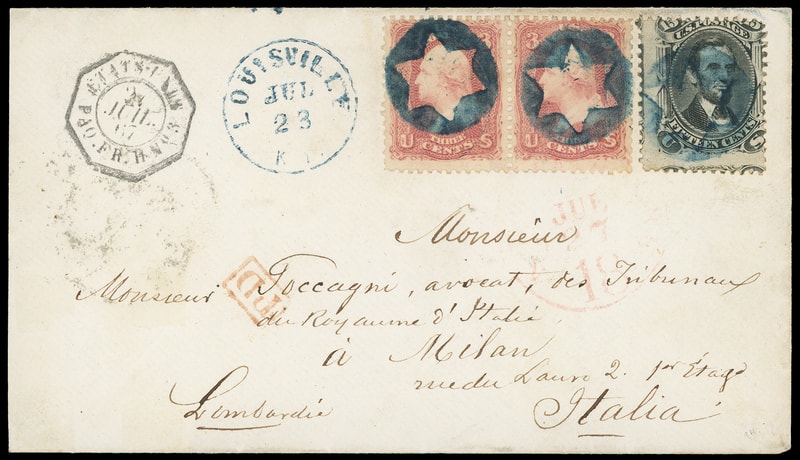 ETATS-UNIS
JUIL
67
PAQ. FR. H No 3
LOUISVILLE
JUL
23
3
THREE
U CENTS S
3
THREE
U CENTS S
U.S. POSTAGE
FIFTEEN CENTS
U S
JUL
PD
Monsieur
Monsieur Toccagni, avocat, des Tribunaux
du Royaume d'Italie
à Milan
rue du Lauro 2. 1er Étage
Lombardie Italia